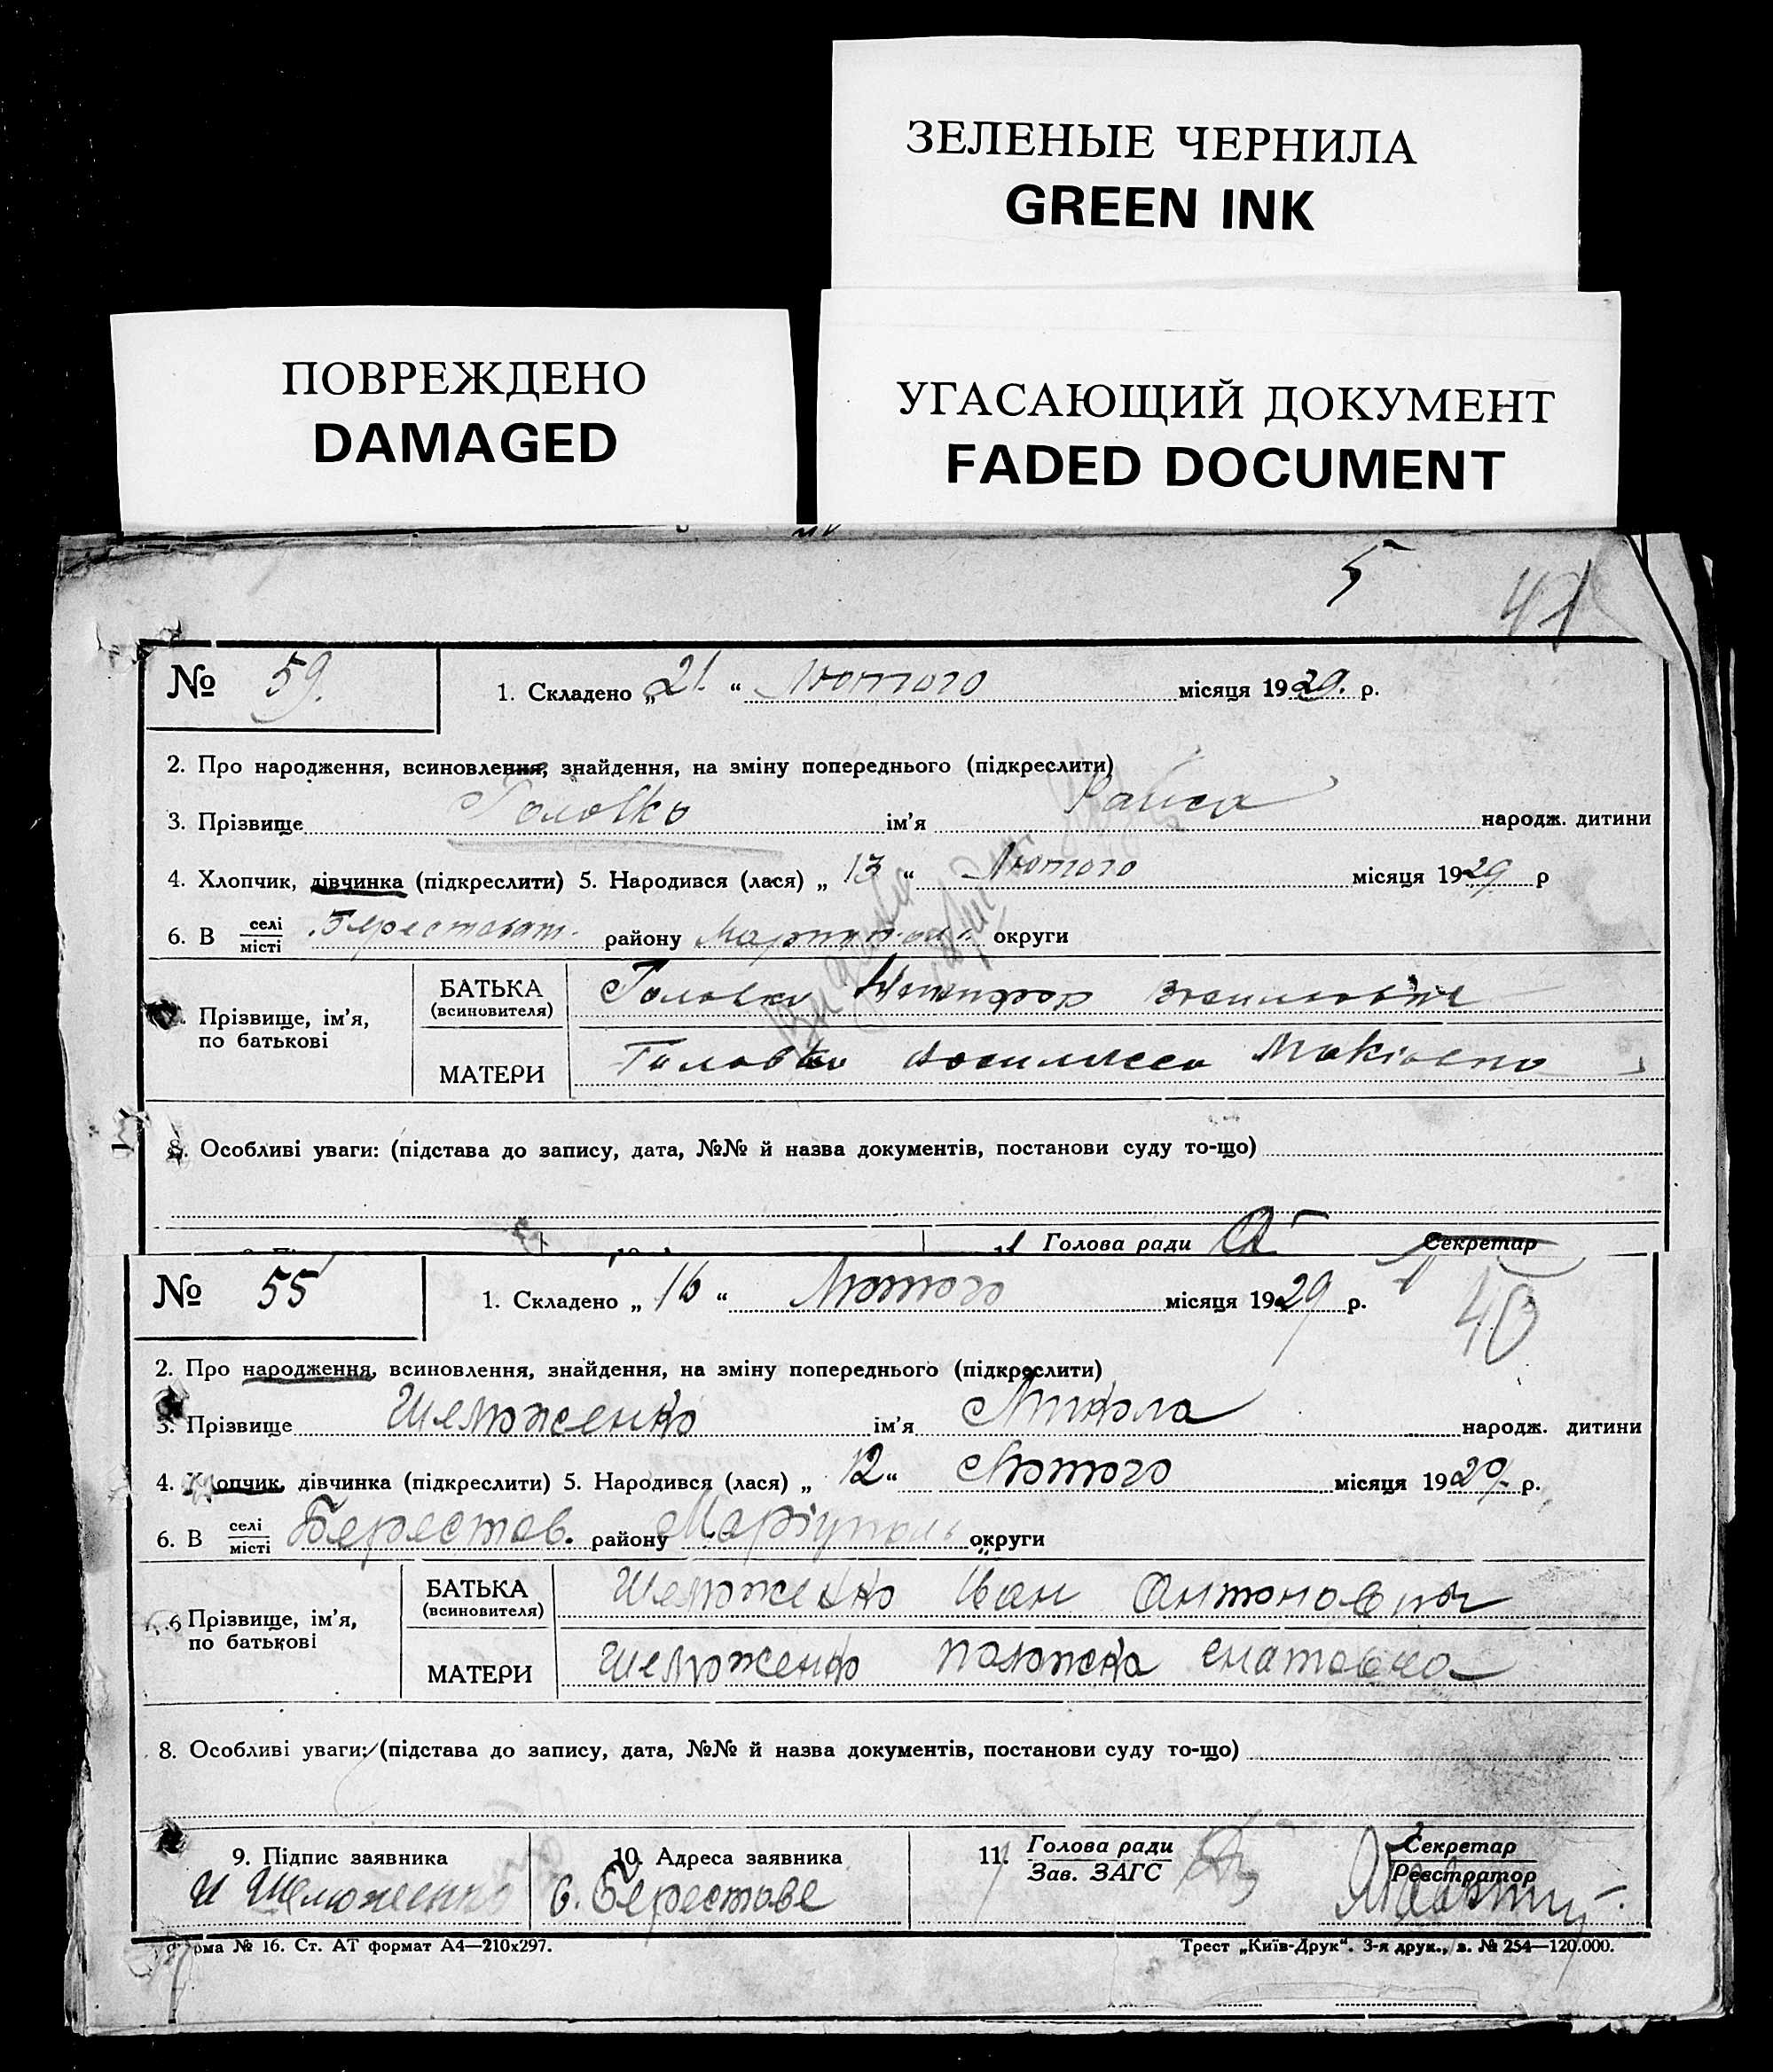 ЗЕЛЕНЫЕ ЧЕРНИЛА
GREEN INK
ПОВРЕЖДЕНО
DAMAGED
УГАСАЮЩИЙ ДОКУМЕНТ
FADED DOCUMENT
5
41
№ 59. 1. Складено „21." Лютого місяця 1929. р.
2. Про народження, всиновлення, знайдення, на зміну попереднього (підкреслити)
3. Прізвище Головко ім'я Раиса народж. дитини
4. Хлопчик, дівчинка (підкреслити) 5. Народився (лася) „13" Лютого місяця 1929 р
6. В селі/місті Берестоват. району Маріупол. округи
Прізвище, ім'я, по батькові
БАТЬКА (всиновителя) Головко Никифор
МАТЕРИ Головко Василиса
8. Особливі уваги: (підстава до запису, дата, №№ й назва документів, постанови суду то-що)
Голова ради Секретар
№ 55 1. Складено „16" Лютого місяця 1929 р.
40
2. Про народження, всиновлення, знайдення, на зміну попереднього (підкреслити)
3. Прізвище Шелюженко ім'я Микола народж. дитини
4. Хлопчик, дівчинка (підкреслити) 5. Народився (лася) „12" Лютого місяця 1929. р.
6. В селі/місті Берестов. району Маріуполь округи
Прізвище, ім'я, по батькові
БАТЬКА (всиновителя) Шелюженко Іван Антонович
МАТЕРИ Шелюженко Палажка
8. Особливі уваги: (підстава до запису, дата, №№ й назва документів, постанови суду то-що)
9. Підпис заявника 10. Адреса заявника 11. Голова ради/Зав. ЗАГС Секретар/Реєстратор
И Шелюженко с. Берестове
Форма № 16. Ст. АТ формат А4—210х297. Трест „Київ-Друк". 3-я друк., з. № 254—120.000.